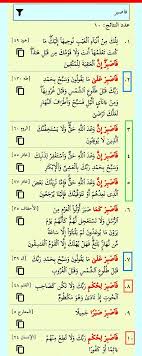 فاصبر
عدد النتائج: ١٠
تِلْكَ مِنْ أَنْبَاءِ الْغَيْبِ نُوحِيهَا إِلَيْكَ مَا
كُنْتَ تَعْلَمُهَا أَنْتَ وَلَا قَوْمُكَ مِنْ قَبْلِ هَٰذَا
فَاصْبِرْ إِنَّ الْعَاقِبَةَ لِلْمُتَّقِينَ
٢. فَاصْبِرْ عَلَىٰ مَا يَقُولُونَ وَسَبِّحْ بِحَمْدِ
رَبِّكَ قَبْلَ طُلُوعِ الشَّمْسِ وَقَبْلَ غُرُوبِهَا
وَمِنْ آنَاءِ اللَّيْلِ فَسَبِّحْ وَأَطْرَافَ النَّهَارِ
لَعَلَّكَ تَرْضَىٰ
٣. فَاصْبِرْ إِنَّ وَعْدَ اللَّهِ حَقٌّ وَلَا يَسْتَخِفَّنَّكَ
الَّذِينَ لَا يُوقِنُونَ
٤. فَاصْبِرْ إِنَّ وَعْدَ اللَّهِ حَقٌّ وَاسْتَغْفِرْ لِذَنْبِكَ
وَسَبِّحْ بِحَمْدِ رَبِّكَ بِالْعَشِيِّ وَالْإِبْكَارِ
فَاصْبِرْ إِنَّ وَعْدَ اللَّهِ حَقٌّ فَإِمَّا نُرِيَنَّكَ بَعْضَ
الَّذِي نَعِدُهُمْ أَوْ نَتَوَفَّيَنَّكَ فَإِلَيْنَا يُرْجَعُونَ
فَاصْبِرْ كَمَا صَبَرَ أُولُو الْعَزْمِ مِنَ
الرُّسُلِ وَلَا تَسْتَعْجِلْ لَهُمْ كَأَنَّهُمْ يَوْمَ
يَرَوْنَ مَا يُوعَدُونَ لَمْ يَلْبَثُوا إِلَّا سَاعَةً
مِنْ نَهَارٍ بَلَاغٌ فَهَلْ يُهْلَكُ إِلَّا الْقَوْمُ الْفَاسِقُونَ
٧. فَاصْبِرْ عَلَىٰ مَا يَقُولُونَ وَسَبِّحْ بِحَمْدِ رَبِّكَ
قَبْلَ طُلُوعِ الشَّمْسِ وَقَبْلَ الْغُرُوبِ
٨. فَاصْبِرْ لِحُكْمِ رَبِّكَ وَلَا تَكُنْ كَصَاحِبِ
الْحُوتِ إِذْ نَادَىٰ وَهُوَ مَكْظُومٌ
فَاصْبِرْ صَبْرًا جَمِيلًا
١٠. فَاصْبِرْ لِحُكْمِ رَبِّكَ وَلَا تُطِعْ مِنْهُمْ
آثِمًا أَوْ كَفُورًا